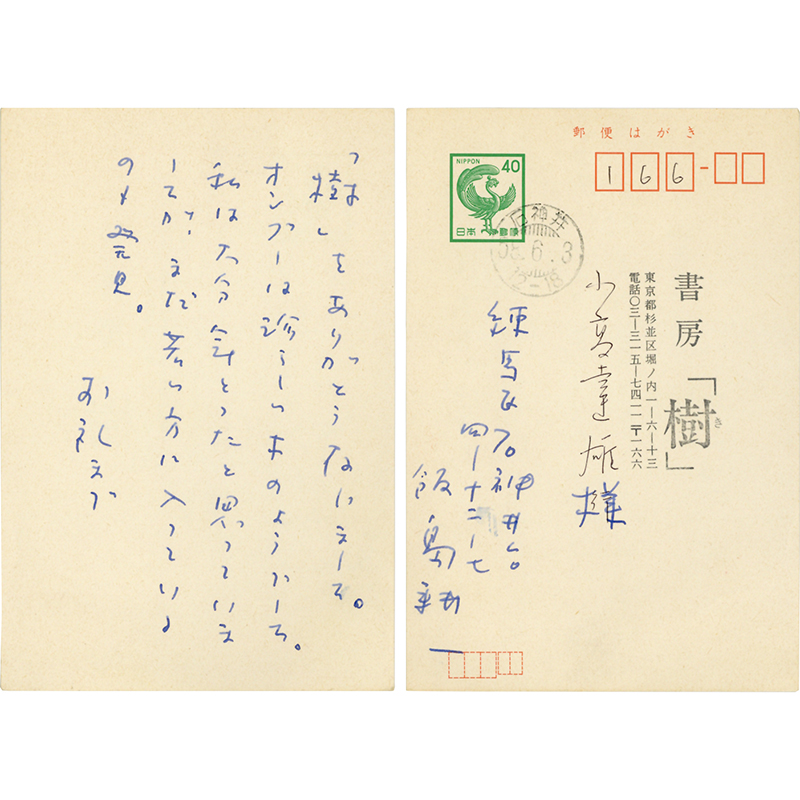 「樹」をありがとうございました。
オンブーは珍らしい木のようでした。
私は大分年とったと思っていま
したが、まだ若い方に入っている
のを発見。
お礼まで
郵便はがき
NIPPON 40
日本郵便
石神井
58.6.3
166
書房「樹」
き
東京都杉並区堀ノ内一ー六ー十三
電話〇三ー三一五ー七四一一〒一六六
小高達雄様
練馬区石神井台
四ー十二ー七
飯島耕一